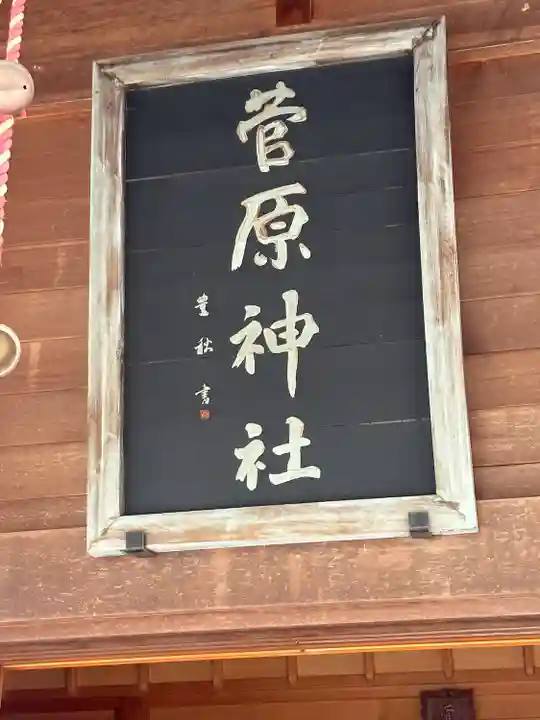 菅原神社
豊秋書